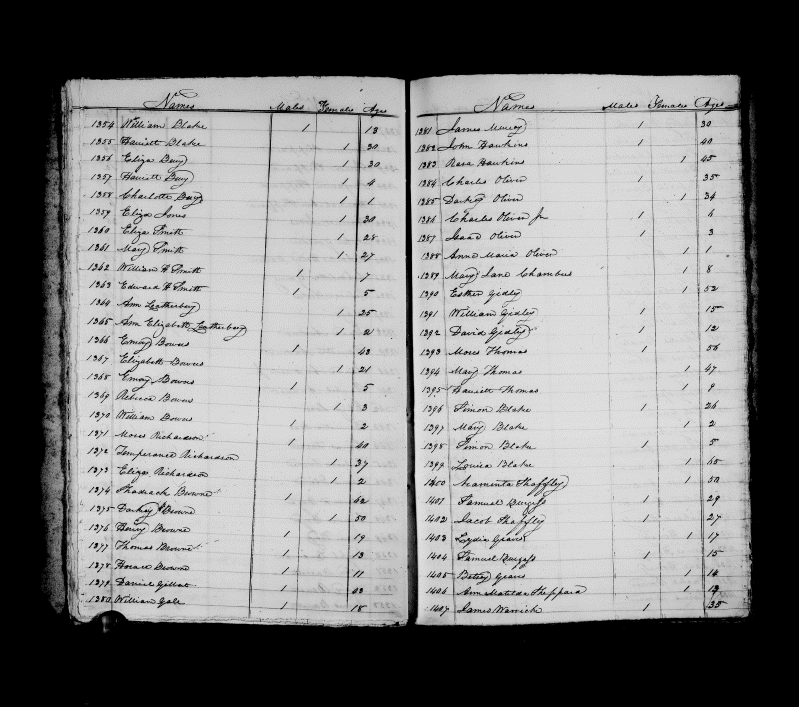 Names Males Females Age
1354 William Blake 1 13
1355 Harriett Blake 1 30
1356 Eliza Bury 1 30
1357 Harriett Bury 1 4
1358 Charlotte Bury 1 1
1359 Eliza Jones 1 30
1360 Eliza Smith 1 28
1361 Mary Smith 1 27
1362 William H Smith 1 7
1363 Edward H Smith 1 5
1364 Ann Leatherbery 1 25
1365 Ann Elizabeth Leatherbery 1 2
1366 Emory Bowers 1 43
1367 Elizabeth Bowers 1 21
1368 Emory Bowers 1 5
1369 Rebecca Bowers 1 3
1370 William Bowers 1 2
1371 Moses Richardson 1 40
1372 Temperance Richardson 1 37
1373 Eliza Richardson 1 2
1374 Shadrach Browne 1 62
1375 Darkey Browne 1 50
1376 Henry Browne 1 19
1377 Thomas Browne 1 13
1378 Horace Browne 1 11
1379 Daniel 1 63
1380 William Gale 1 18
Names Males Females Ages
1381 James 1 30
1382 John Hawkins 1 40
1383 Rosa Hawkins 1 45
1384 Charles Oliver 1 35
1385 Darkey Oliver 1 34
1386 Charles Oliver Jr 1 4
1387 Isaac Oliver 1 3
1388 Anna Maria Oliver 1 1
1389 Mary Jane Chambers 1 8
1390 Esther Gidley 1 52
1391 William Gidley 1 15
1392 David Gidley 1 12
1393 Moses Thomas 1 56
1394 Mary Thomas 1 47
1395 Harriett Thomas 1 9
1396 Simon Blake 1 26
1397 Mary Blake 1 2
1398 Simon Blake 1 5
1399 Louisa Blake 1 65
1400 Araminta 1 50
1401 Samuel Burgess 1 29
1402 Jacob 1 27
1403 Lydia Graves 1 17
1404 Samuel Burgess 1 15
1405 Betsey Graves 1 14
1406 Ann Matilda Sheppard 1
1407 James Warrick 1 35